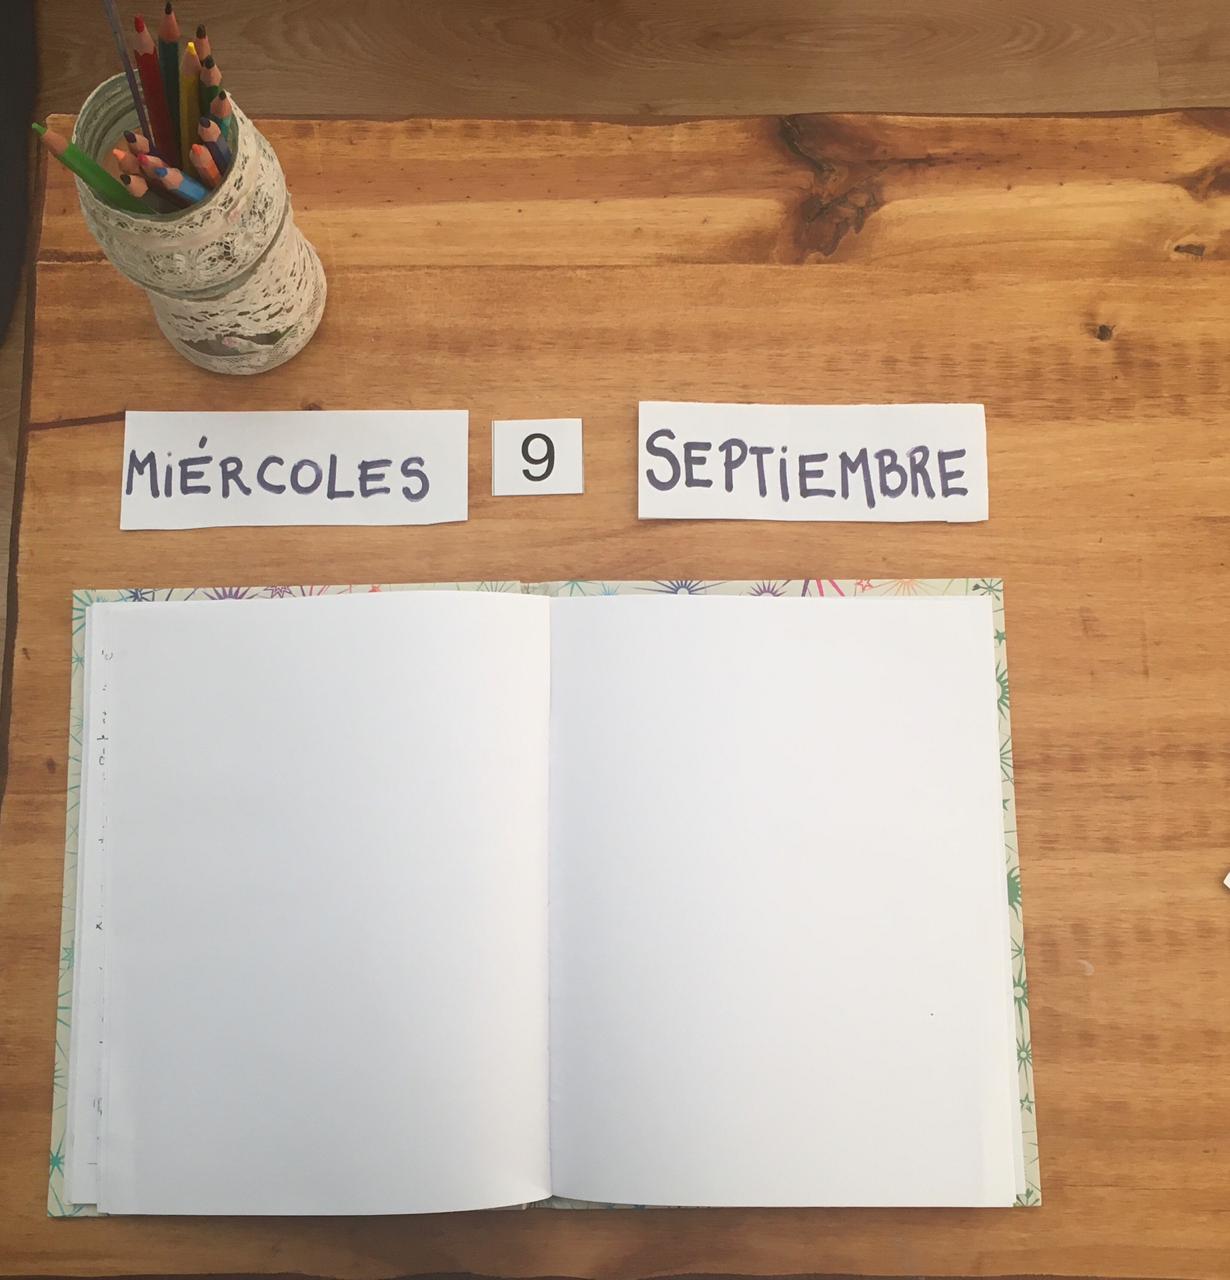 MiÉRCOLES 9 SEPTiEMBRE